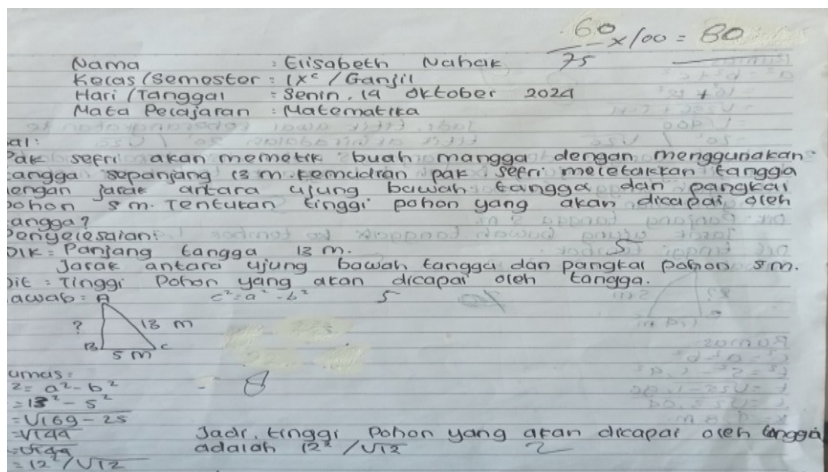 60/75 x 100 = 80
Nama : Elisabeth Nahak
Kelas/Semester : IXc / Ganjil
Hari/Tanggal : Senin, 14 Oktober 2024
Mata Pelajaran : Matematika
al:
Pak sefri akan memetik buah mangga dengan menggunakan
tangga sepanjang 13 m. Kemudian pak sefri meletakkan tangga
dengan jarak antara ujung bawah tangga dan pangkal
pohon 5 m. Tentukan tinggi pohon yang akan dicapai oleh
tangga?
Penyelesaian:
Dik: Panjang tangga 13 m. 5
Jarak antara ujung bawah tangga dan pangkal pohon 5 m.
Dit : Tinggi Pohon yang akan dicapai oleh tangga.
Jawab: A c² = a² - b² 5
? 13 m
B C
5 m
umus:
2 = a² - b² 8
= 13² - 5²
= √169 - 25
= √144 Jadi, tinggi Pohon yang akan dicapai oleh tangga
= √144 adalah 12² / √12 2
= 12² / √12